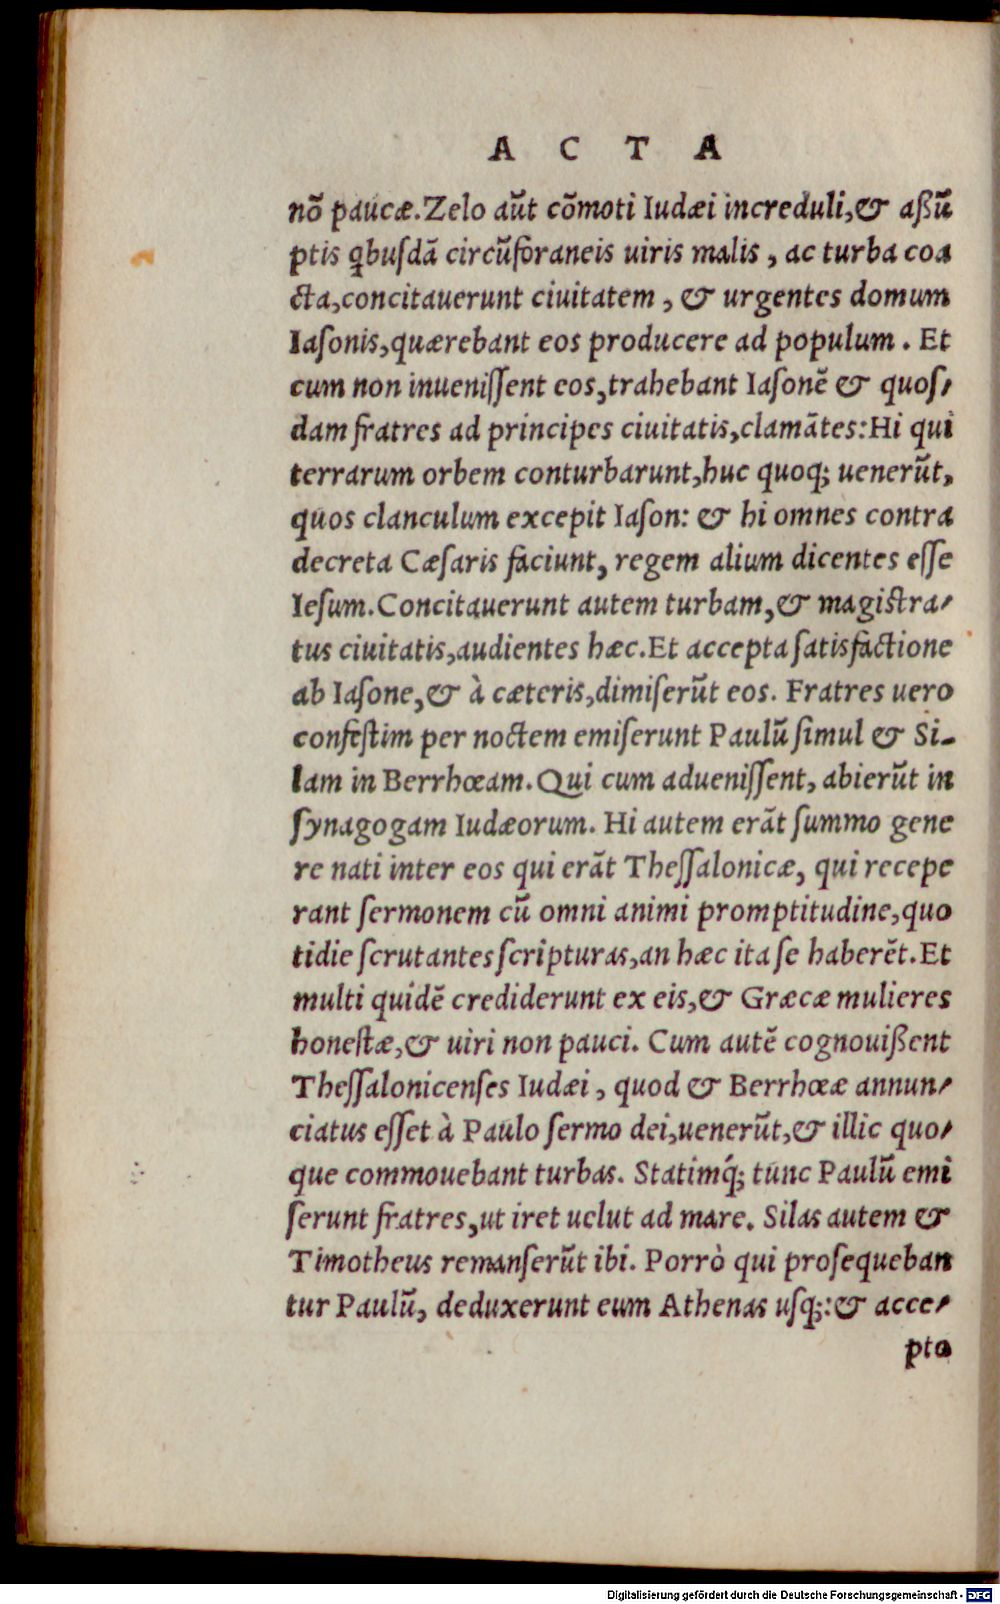 A C T A
nõ paucæ. Zelo aũt cõmoti Iudæi increduli, & aßũ
ptis qbuſdã circũforaneis uiris malis, ac turba coa
cta, concitauerunt ciuitatem, & urgentes domum
Iaſonis, quærebant eos producere ad populum. Et
cum non inueniſſent eos, trahebant Iaſonẽ & quoſ⸗
dam fratres ad principes ciuitatis, clamãtes: Hi qui
terrarum orbem conturbarunt, huc quoq; uenerũt,
quos clanculum excepit Iaſon: & hi omnes contra
decreta Cæſaris faciunt, regem alium dicentes eſſe
Ieſum. Concitauerunt autem turbam, & magiſtra⸗
tus ciuitatis, audientes hæc. Et accepta ſatisfactione
ab Iaſone, & à cæteris, dimiſerũt eos. Fratres uero
confeſtim per noctem emiſerunt Paulũ ſimul & Si-
lam in Berrhœam. Qui cum adueniſſent, abierũt in
ſynagogam Iudæorum. Hi autem erãt ſummo gene
re nati inter eos qui erãt Theſſalonicæ, qui recepe
rant ſermonem cũ omni animi promptitudine, quo
tidie ſcrutantes ſcripturas, an hæc ita ſe haberẽt. Et
multi quidẽ crediderunt ex eis, & Græcæ mulieres
honeſtæ, & uiri non pauci. Cum autẽ cognouißent
Theſſalonicenſes Iudæi, quod & Berrhœæ annun⸗
ciatus eſſet à Paulo ſermo dei, uenerũt, & illic quo⸗
que commouebant turbas. Statimq́; tunc Paulũ emi
ſerunt fratres, ut iret uelut ad mare. Silas autem &
Timotheus remanſerũt ibi. Porrò qui proſequeban
tur Paulũ, deduxerunt eum Athenas uſq;: & acce⸗
pta
Digitalisierung gefördert durch die Deutsche Forschungsgemeinschaft - DFG